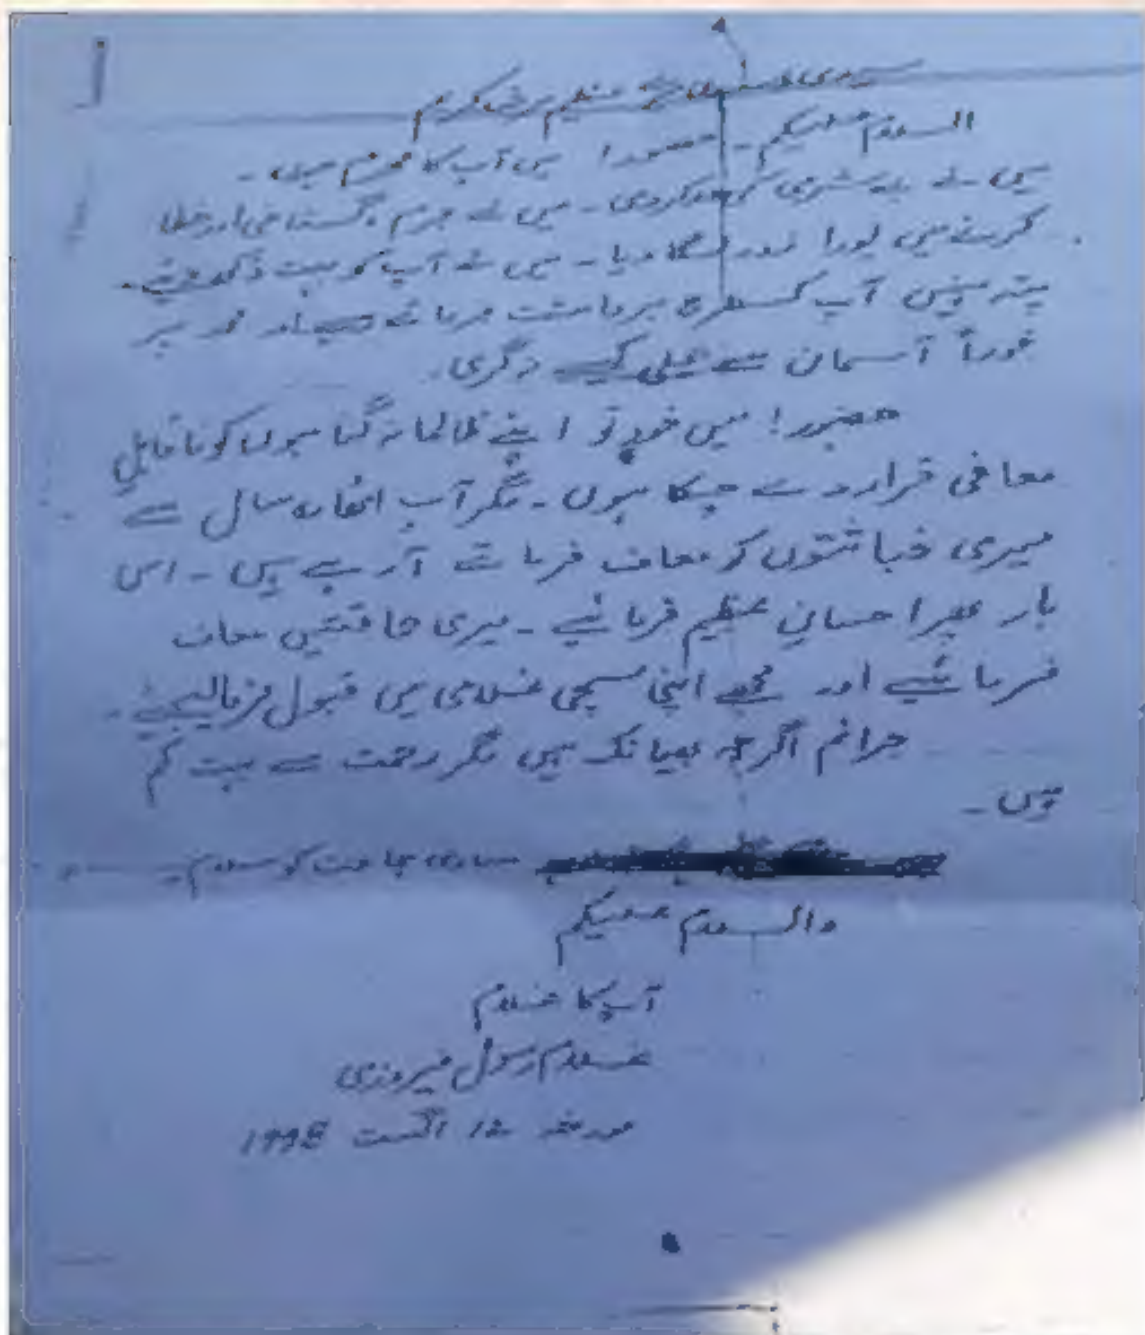 السلام علیکم ۔ حضور! میں آپ کا مجرم ہوں ۔
میں نے بے شرمی کی حد کر دی ۔ میں نے جرم، گستاخی اور خطا
کرنے میں پورا زور لگا دیا ۔ میں نے آپ کو بہت دکھ دیئے ۔
پتہ نہیں آپ کسطرح برداشت فرماتے رہے اور مجھ پر
فوراً آسمان سے بجلی کیسے نہ گری ۔
حضور! میں خود تو اپنے ظالمانہ گناہوں کو ناقابلِ
معافی قرار دے چکا ہوں ۔ مگر آپ اٹھارہ سال سے
میری خباثتوں کو معاف فرماتے آ رہے ہیں ۔ اس
بار پھر احسانِ عظیم فرمائیے ۔ میری حماقتیں معاف
فرمائیے اور مجھے اپنی سچی غلامی میں قبول فرما لیجئے ۔
جرائم اگرچہ بھیانک ہیں مگر رحمت سے بہت کم
ہیں ۔
ساری جماعت کو سلام ۔
والسلام علیکم
آپ کا غلام
غلام رسول فیروزی
مورخہ 12 اگست 1998